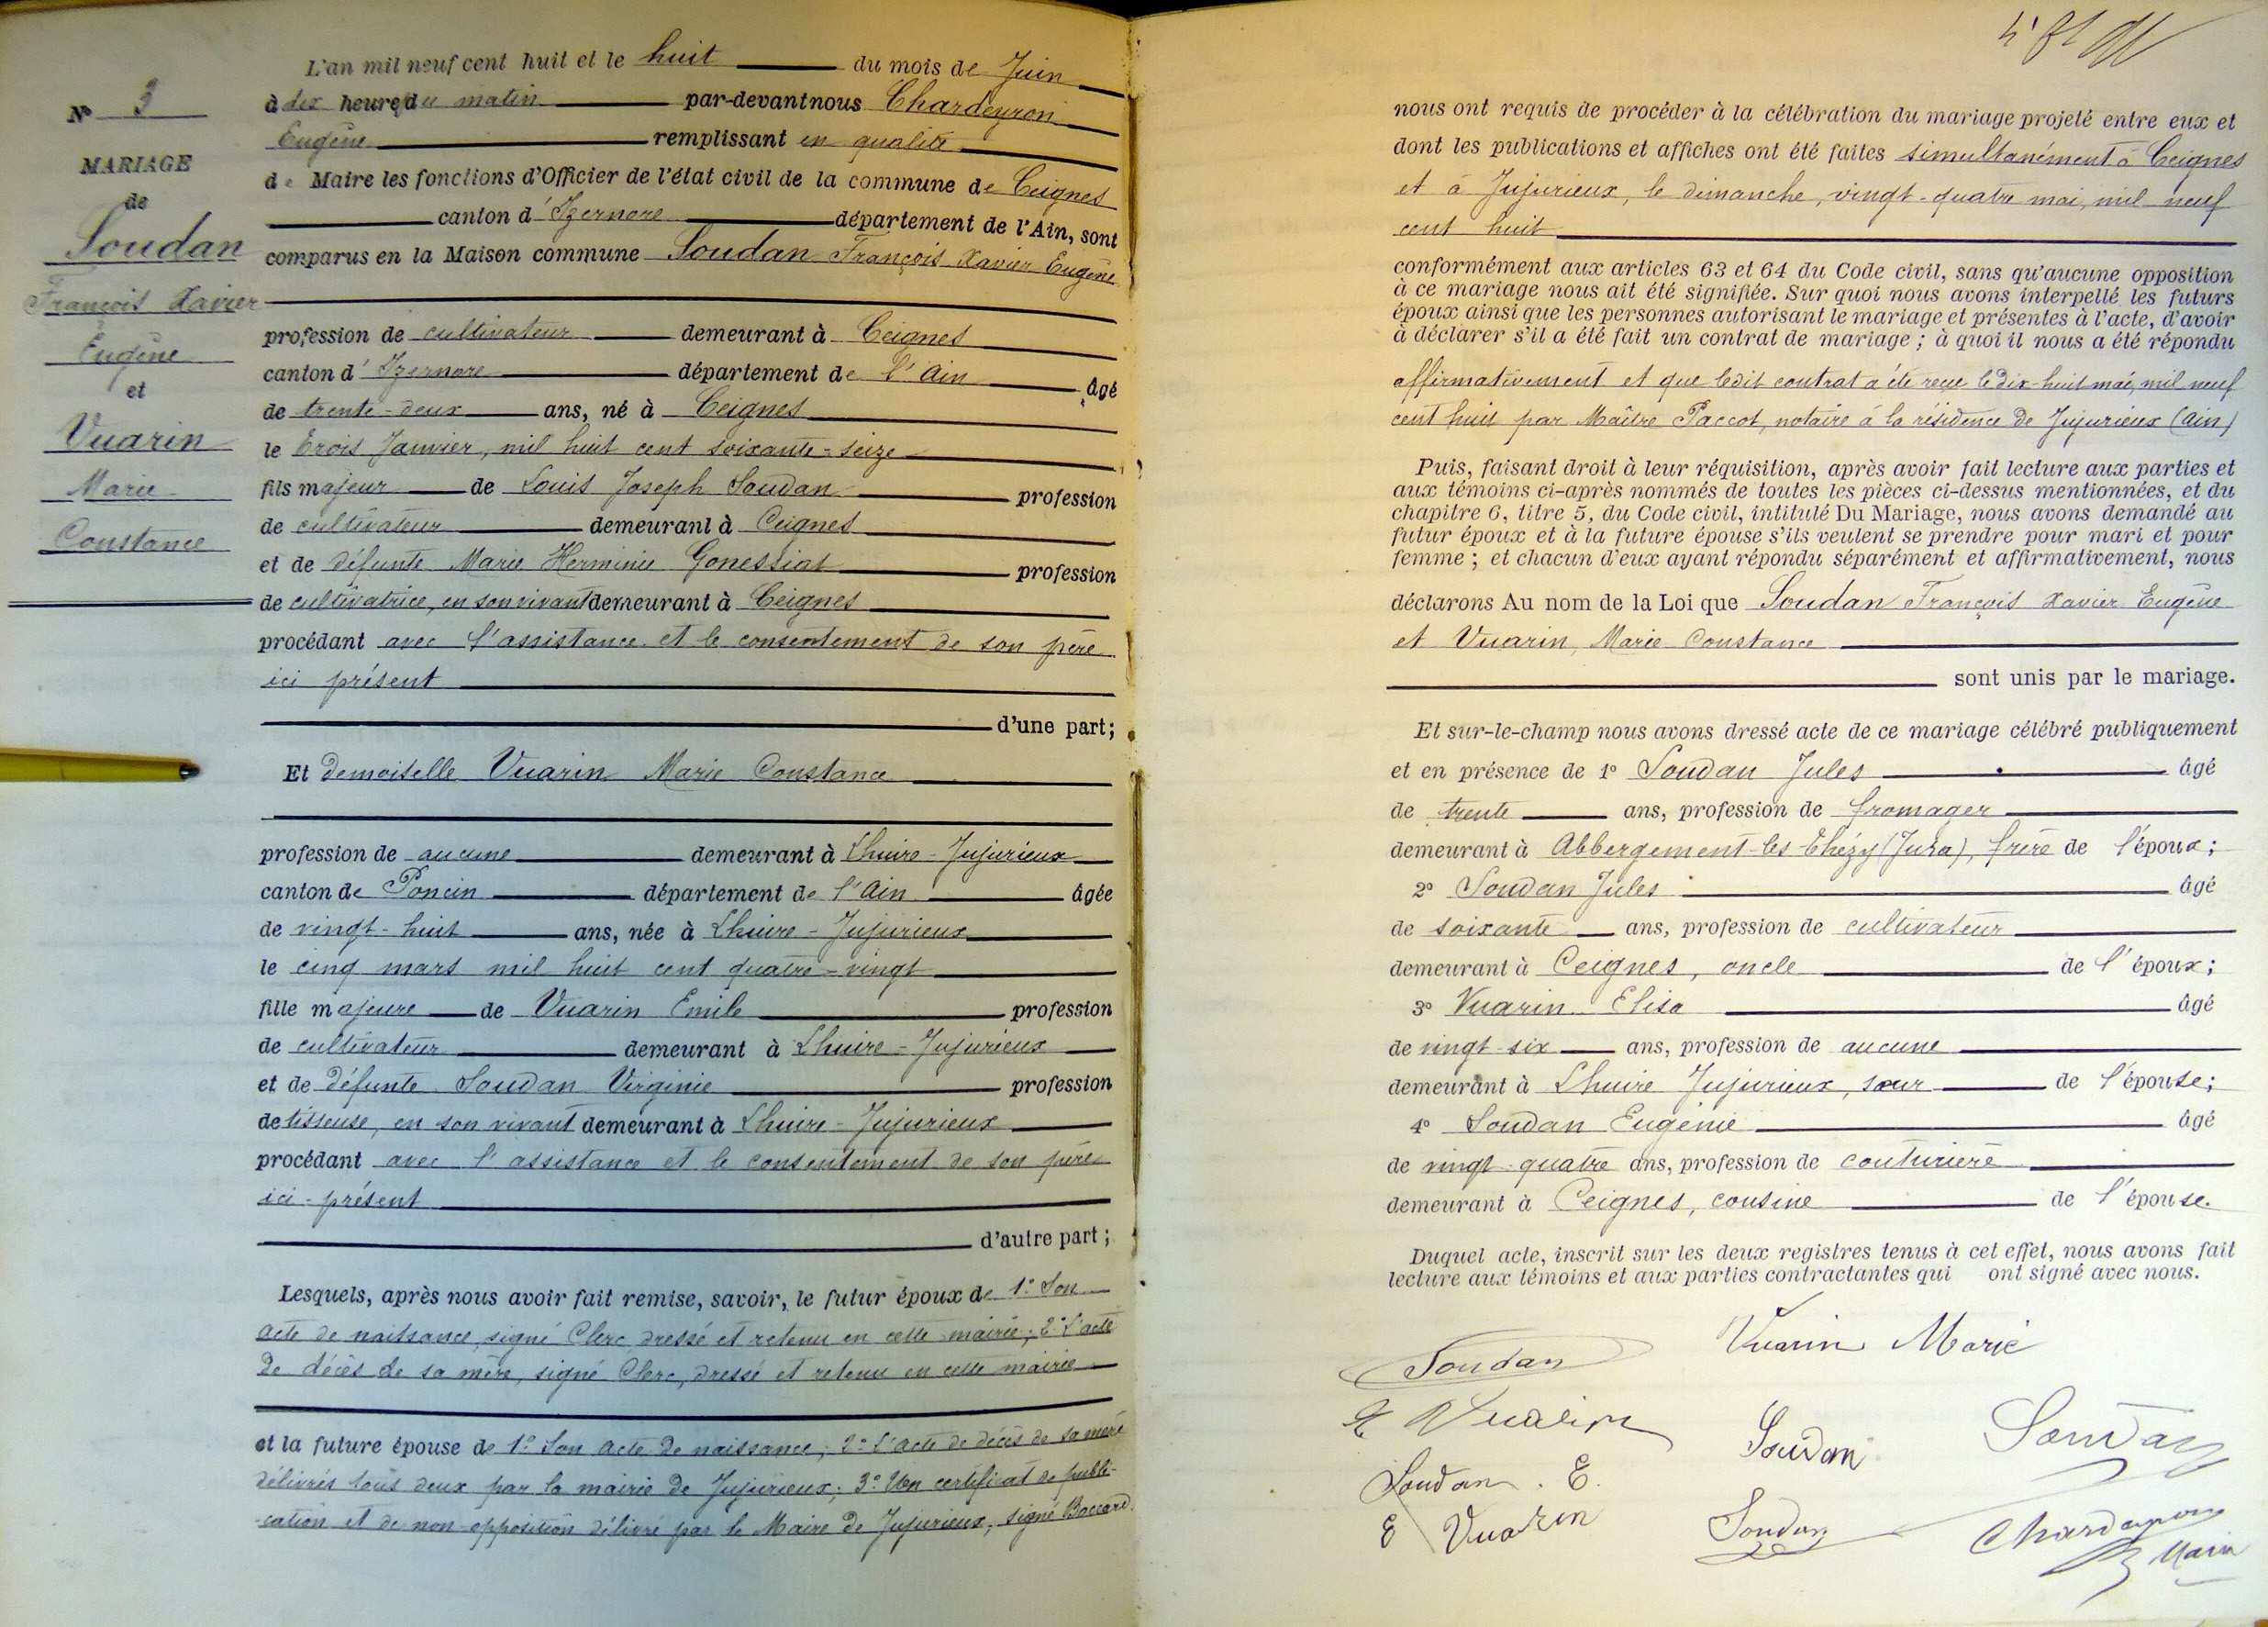 N° 3
MARIAGE
de
Soudan
François Xavier
Eugène
et
Vuarin
Marie
Constance
L'an mil neuf cent huit et le huit du mois de Juin
à dix heures du matin par-devant nous Chardeyron
Eugène remplissant en qualité
de Maire les fonctions d'Officier de l'état civil de la commune de Ceignes
canton d'Izernore département de l'Ain, sont
comparus en la Maison commune Soudan François Xavier Eugène
profession de cultivateur demeurant à Ceignes
canton d'Izernore département de l'Ain âgé
de trente-deux ans, né à Ceignes
le trois Janvier, mil huit cent soixante-seize
fils majeur de Louis Joseph Soudan profession
de cultivateur demeurant à Ceignes
et de défunte Marie Herminie Gonessiat profession
de cultivatrice, en son vivant demeurant à Ceignes
procédant avec l'assistance et le consentement de son père
ici présent
d'une part;
Et demoiselle Vuarin Marie Constance
profession de aucune demeurant à Lhuire-Jujurieux
canton de Poncin département de l'Ain âgée
de vingt-huit ans, née à Lhuire-Jujurieux
le cinq mars mil huit cent quatre-vingt
fille majeure de Vuarin Emile profession
de cultivateur demeurant à Lhuire-Jujurieux
et de défunte Soudan Virginie profession
de tisseuse, en son vivant demeurant à Lhuire-Jujurieux
procédant avec l'assistance et le consentement de son père
ici-présent
d'autre part;
Lesquels, après nous avoir fait remise, savoir, le futur époux de 1° Son
acte de naissance, signé Clerc, dressé et retenu en cette mairie; 2° L'acte
de décès de sa mère, signé Clerc, dressé et retenu en cette mairie
et la future épouse de 1° Son acte de naissance; 2° L'acte de décès de sa mère
délivrés tous deux par la mairie de Jujurieux; 3° Un certificat de publi-
-cation et de non-opposition délivré par le Maire de Jujurieux, signé Boccard.
nous ont requis de procéder à la célébration du mariage projeté entre eux et
dont les publications et affiches ont été faites simultanément à Ceignes
et à Jujurieux, le dimanche, vingt-quatre mai, mil neuf
cent huit
conformément aux articles 63 et 64 du Code civil, sans qu'aucune opposition
à ce mariage nous ait été signifiée. Sur quoi nous avons interpellé les futurs
époux ainsi que les personnes autorisant le mariage et présentes à l'acte, d'avoir
à déclarer s'il a été fait un contrat de mariage; à quoi il nous a été répondu
affirmativement et que ledit contrat a été reçu le dix-huit mai, mil neuf
cent huit par Maître Paccot, notaire à la résidence de Jujurieux (Ain)
Puis, faisant droit à leur réquisition, après avoir fait lecture aux parties et
aux témoins ci-après nommés de toutes les pièces ci-dessus mentionnées, et du
chapitre 6, titre 5, du Code civil, intitulé Du Mariage, nous avons demandé au
futur époux et à la future épouse s'ils veulent se prendre pour mari et pour
femme; et chacun d'eux ayant répondu séparément et affirmativement, nous
déclarons Au nom de la Loi que Soudan François Xavier Eugène
et Vuarin, Marie Constance
sont unis par le mariage.
Et sur-le-champ nous avons dressé acte de ce mariage célébré publiquement
et en présence de 1° Soudan Jules âgé
de trente ans, profession de fromager
demeurant à Abbergement-les-Thézy (Jura), frère de l'époux;
2° Soudan Jules âgé
de soixante ans, profession de cultivateur
demeurant à Ceignes, oncle de l'époux;
3° Vuarin Elisa âgé
de vingt-six ans, profession de aucune
demeurant à Lhuire Jujurieux, sœur de l'épouse;
4° Soudan Eugénie âgé
de vingt-quatre ans, profession de couturière
demeurant à Ceignes, cousine de l'épouse.
Duquel acte, inscrit sur les deux registres tenus à cet effet, nous avons fait
lecture aux témoins et aux parties contractantes qui ont signé avec nous.
Vuarin Marie
Soudan
E Vuarin
Soudan
Soudan
Soudan. E.
E Vuarin
Soudan
Chardeyron
Maire